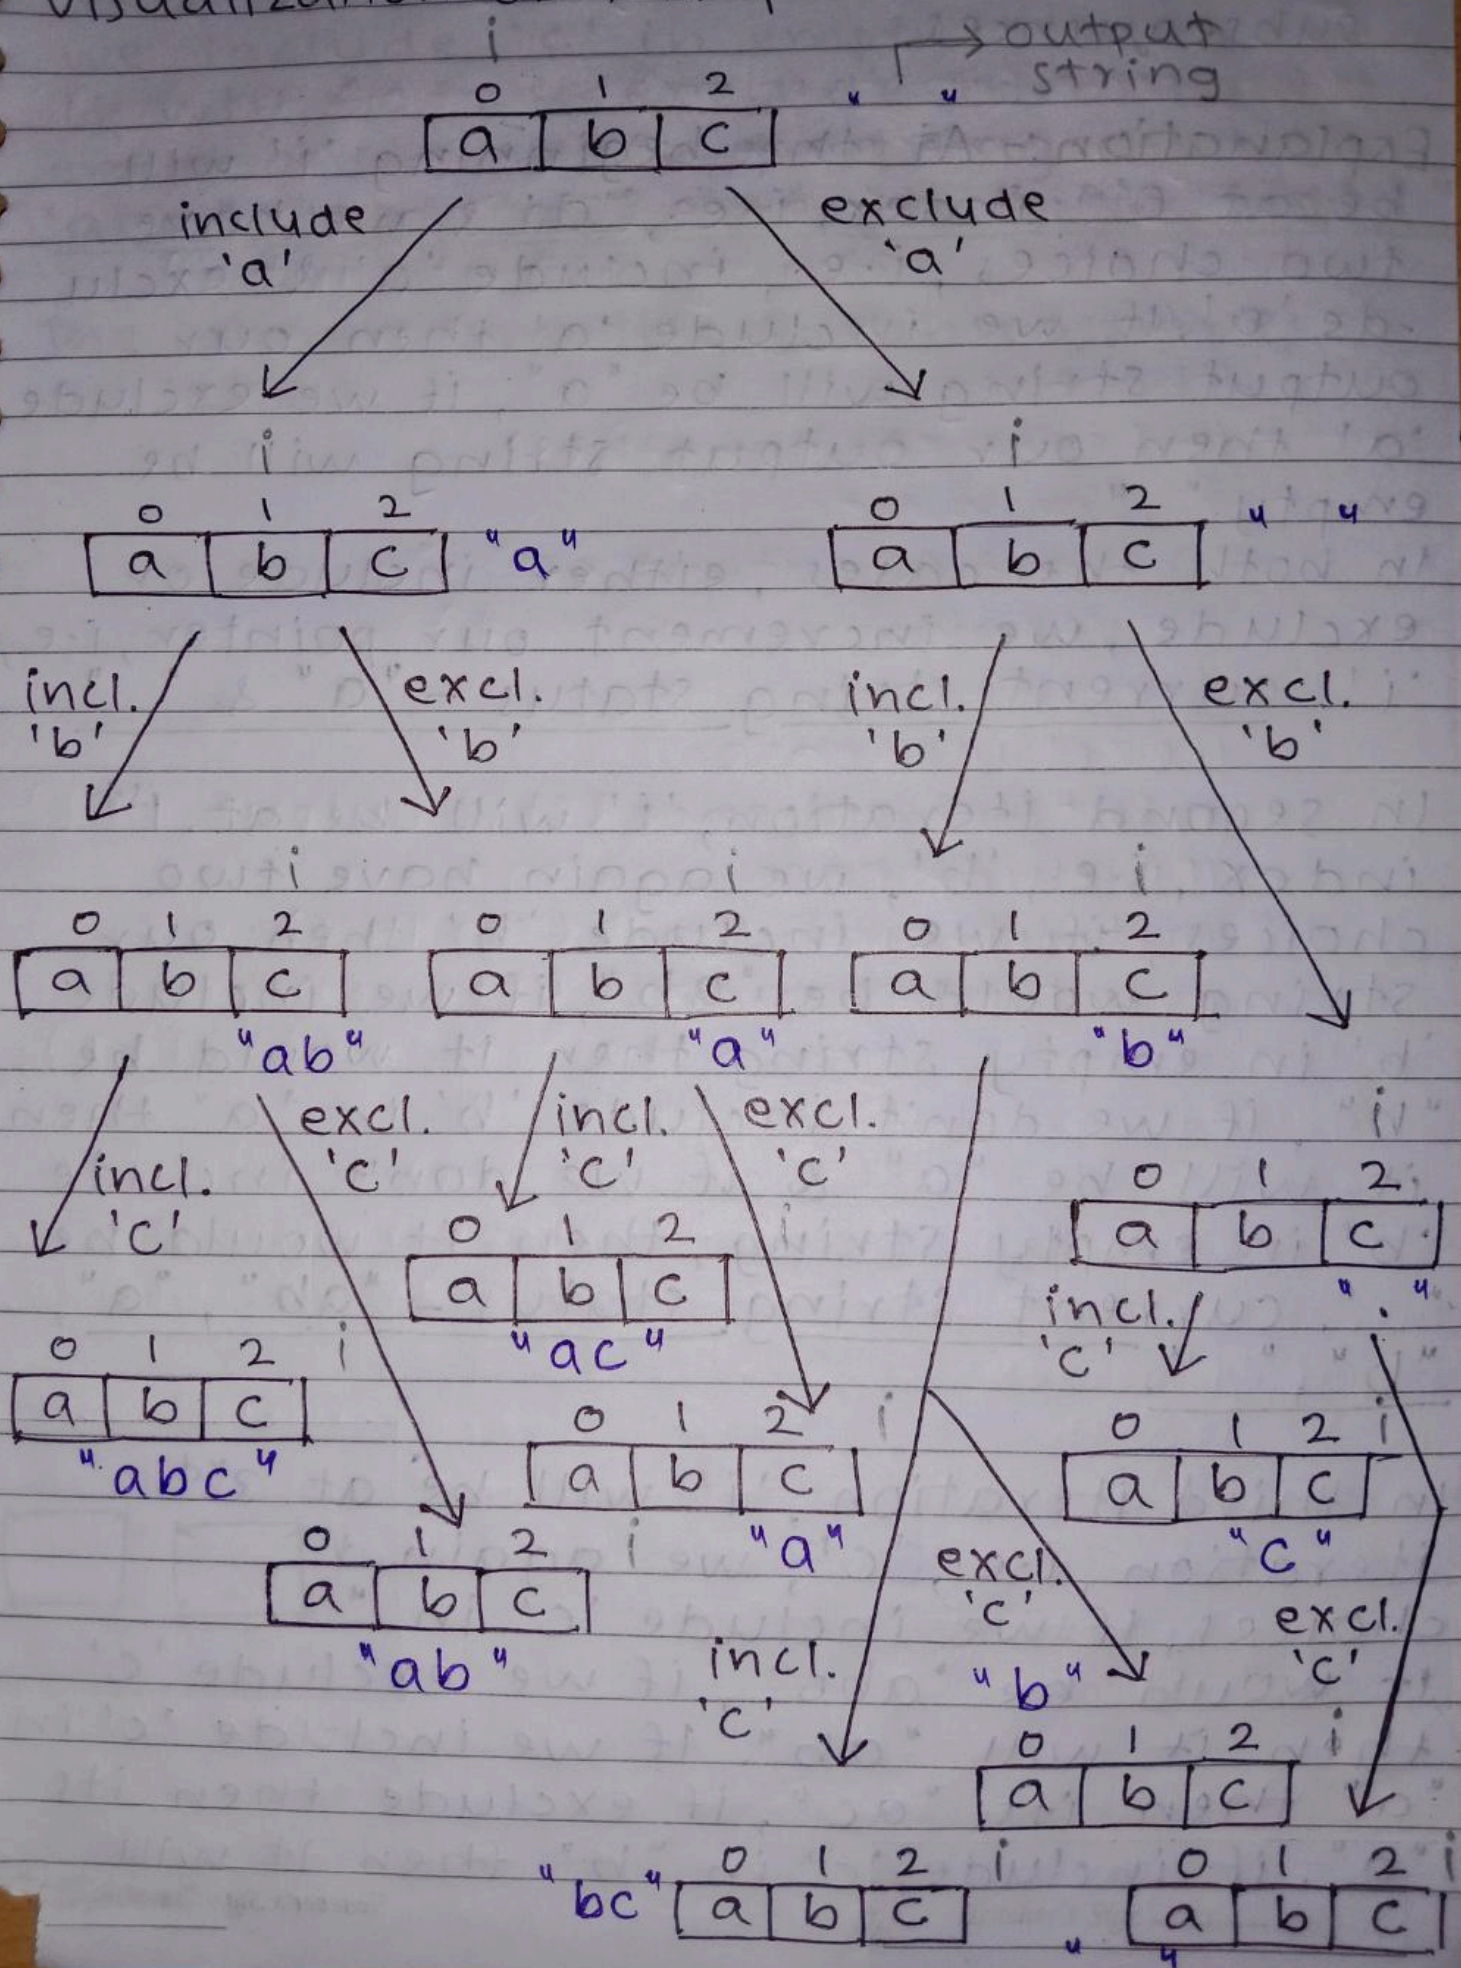 i
output
string
0 1 2 " "
a b c
include
'a'
exclude
'a'
i
0 1 2
a b c "a"
i
0 1 2
a b c " "
incl.
'b'
excl.
'b'
incl.
'b'
excl.
'b'
i
0 1 2
a b c
"ab"
i
0 1 2
a b c
"a"
i
0 1 2
a b c
"b"
incl.
'c'
excl.
'c'
incl.
'c'
excl.
'c'
i
0 1 2
a b c
" "
0 1 2 i
a b c
"ac"
incl.
'c'
0 1 2 i
a b c
"abc"
0 1 2 i
a b c
"a"
0 1 2 i
a b c
"c"
0 1 2 i
a b c
"ab"
incl.
'c'
excl.
'c'
excl.
'c'
"b"
0 1 2 i
a b c
0 1 2 i
"bc" a b c
0 1 2 i
a b c
" "